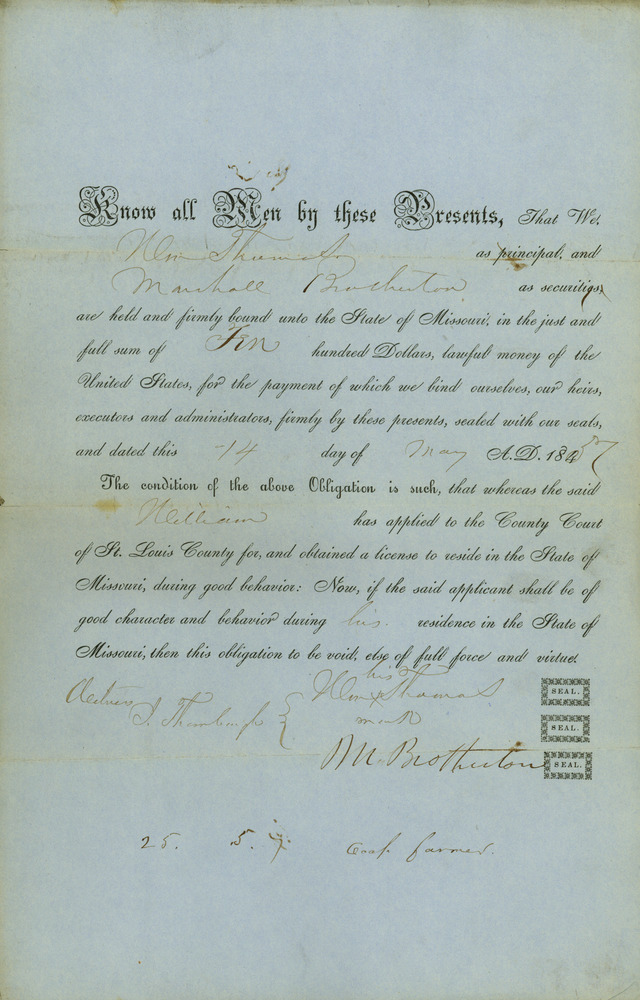 Know all Men by these Presents, That We,
Wm Thomas as principal, and
Marshall Brotherton as securities,
are held and firmly bound unto the State of Missouri, in the just and
full sum of Ten hundred Dollars, lawful money of the
United States, for the payment of which we bind ourselves, our heirs,
executors and administrators, firmly by these presents, sealed with our seals,
and dated this 14 day of May A.D. 1857
The condition of the above Obligation is such, that whereas the said
William has applied to the County Court
of St. Louis County for, and obtained a license to reside in the State of
Missouri, during good behavior: Now, if the said applicant shall be of
good character and behavior during his residence in the State of
Missouri, then this obligation to be void, else of full force and virtue.
his
Witness Wm + Thomas SEAL.
J. mark SEAL.
M Brotherton SEAL.
25. 5. 7 farmer.